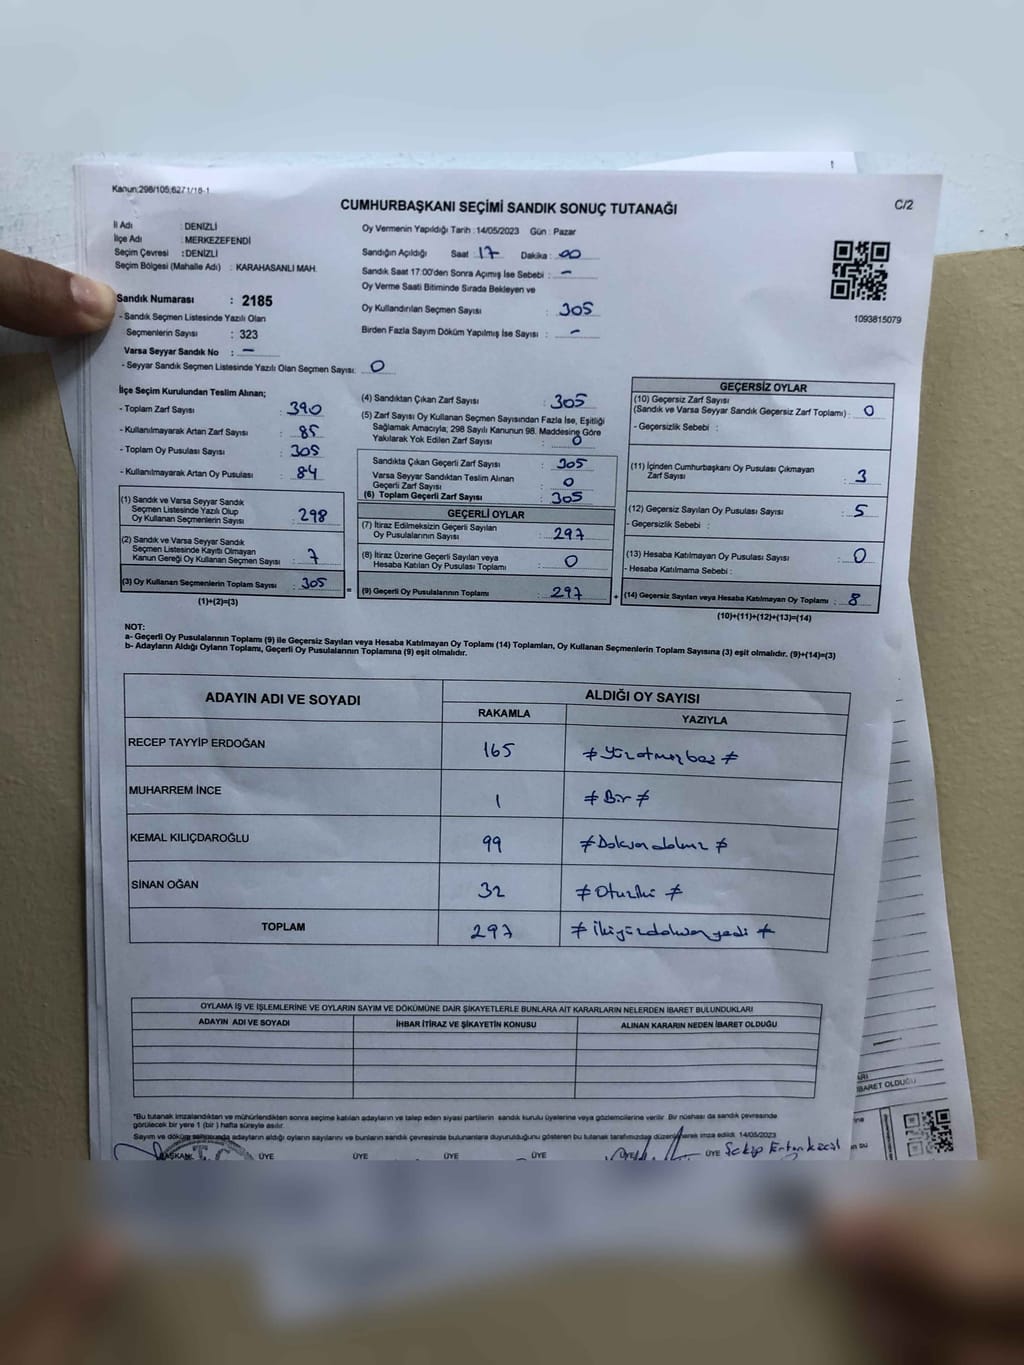 Kanun:298/105;6271/18-1
CUMHURBAŞKANI SEÇİMİ SANDIK SONUÇ TUTANAĞI
C/2
İl Adı : DENİZLİ
İlçe Adı : MERKEZEFENDİ
Seçim Çevresi : DENİZLİ
Seçim Bölgesi (Mahalle Adı) : KARAHASANLI MAH.
Oy Vermenin Yapıldığı Tarih : 14/05/2023 Gün : Pazar
Sandığın Açıldığı Saat 17 Dakika : 00
Sandık Saat 17:00'den Sonra Açımış İse Sebebi : -
Oy Verme Saati Bitiminde Sırada Bekleyen ve
Oy Kullandırılan Seçmen Sayısı : 305
Birden Fazla Sayım Döküm Yapılmış İse Sayısı : -
1093815079
Sandık Numarası : 2185
- Sandık Seçmen Listesinde Yazılı Olan
Seçmenlerin Sayısı : 323
Varsa Seyyar Sandık No : -
- Seyyar Sandık Seçmen Listesinde Yazılı Olan Seçmen Sayısı: 0
İlçe Seçim Kurulundan Teslim Alınan;
- Toplam Zarf Sayısı : 390
- Kullanılmayarak Artan Zarf Sayısı : 85
- Toplam Oy Pusulası Sayısı : 305
- Kullanılmayarak Artan Oy Pusulası : 84
(1) Sandık ve Varsa Seyyar Sandık
Seçmen Listesinde Yazılı Olup
Oy Kullanan Seçmenlerin Sayısı : 298
(2) Sandık ve Varsa Seyyar Sandık
Seçmen Listesinde Kayıtlı Olmayan
Kanun Gereği Oy Kullanan Seçmen Sayısı : 7
(3) Oy Kullanan Seçmenlerin Toplam Sayısı : 305
(1)+(2)=(3)
(4) Sandıktan Çıkan Zarf Sayısı : 305
(5) Zarf Sayısı Oy Kullanan Seçmen Sayısından Fazla İse, Eşitliği
Sağlamak Amacıyla; 298 Sayılı Kanunun 98. Maddesine Göre
Yakılarak Yok Edilen Zarf Sayısı : 0
Sandıkta Çıkan Geçerli Zarf Sayısı : 305
Varsa Seyyar Sandıktan Teslim Alınan
Geçerli Zarf Sayısı : 0
(6) Toplam Geçerli Zarf Sayısı : 305
GEÇERLİ OYLAR
(7) İtiraz Edilmeksizin Geçerli Sayılan
Oy Pusulalarının Sayısı : 297
(8) İtiraz Üzerine Geçerli Sayılan veya
Hesaba Katılan Oy Pusulası Toplamı : 0
= (9) Geçerli Oy Pusulalarının Toplamı : 297 +
GEÇERSİZ OYLAR
(10) Geçersiz Zarf Sayısı
(Sandık ve Varsa Seyyar Sandık Geçersiz Zarf Toplamı) : 0
- Geçersizlik Sebebi :
(11) İçinden Cumhurbaşkanı Oy Pusulası Çıkmayan
Zarf Sayısı : 3
(12) Geçersiz Sayılan Oy Pusulası Sayısı : 5
- Geçersizlik Sebebi :
(13) Hesaba Katılmayan Oy Pusulası Sayısı : 0
- Hesaba Katılmama Sebebi :
(14) Geçersiz Sayılan veya Hesaba Katılmayan Oy Toplamı : 8
(10)+(11)+(12)+(13)=(14)
NOT:
a- Geçerli Oy Pusulalarının Toplamı (9) ile Geçersiz Sayılan veya Hesaba Katılmayan Oy Toplamı (14) Toplamları, Oy Kullanan Seçmenlerin Toplam Sayısına (3) eşit olmalıdır. (9)+(14)=(3)
b- Adayların Aldığı Oyların Toplamı, Geçerli Oy Pusulalarının Toplamına (9) eşit olmalıdır.
ADAYIN ADI VE SOYADI ALDIĞI OY SAYISI
RAKAMLA YAZIYLA
RECEP TAYYİP ERDOĞAN 165 ≠ Yüzatmışbeş ≠
MUHARREM İNCE 1 ≠ Bir ≠
KEMAL KILIÇDAROĞLU 99 ≠ Doksandokuz ≠
SİNAN OĞAN 32 ≠ Otuziki ≠
TOPLAM 297 ≠ İkiyüzdoksanyedi ≠
OYLAMA İŞ VE İŞLEMLERİNE VE OYLARIN SAYIM VE DÖKÜMÜNE DAİR ŞİKAYETLERLE BUNLARA AİT KARARLARIN NELERDEN İBARET BULUNDUKLARI
ADAYIN ADI VE SOYADI İHBAR İTİRAZ VE ŞİKAYETİN KONUSU ALINAN KARARIN NEDEN İBARET OLDUĞU
*Bu tutanak imzalandıktan ve mühürlendikten sonra seçime katılan adayların ve talep eden siyasi partilerin sandık kurulu üyelerine veya gözlemcilerine verilir. Bir nüshası da sandık çevresinde
görülecek bir yere 1 (bir) hafta süreyle asılır.
Sayım ve döküm sonucunda adayların aldığı oyların sayılarını ve bunların sandık çevresinde bulunanlara duyurulduğunu gösteren bu tutanak tarafımızdan düzenlenerek imza edildi. 14/05/2023
BAŞKAN ÜYE ÜYE ÜYE ÜYE ÜYE ÜYE
İBARET OLDUĞU